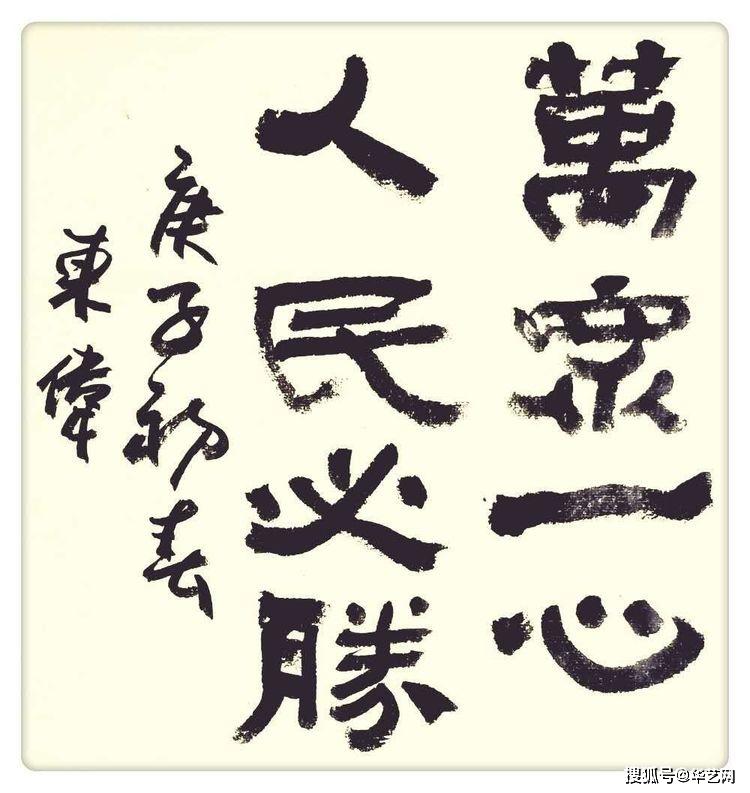 萬眾一心
人民必勝
庚子初春
東偉
搜狐号@华艺网